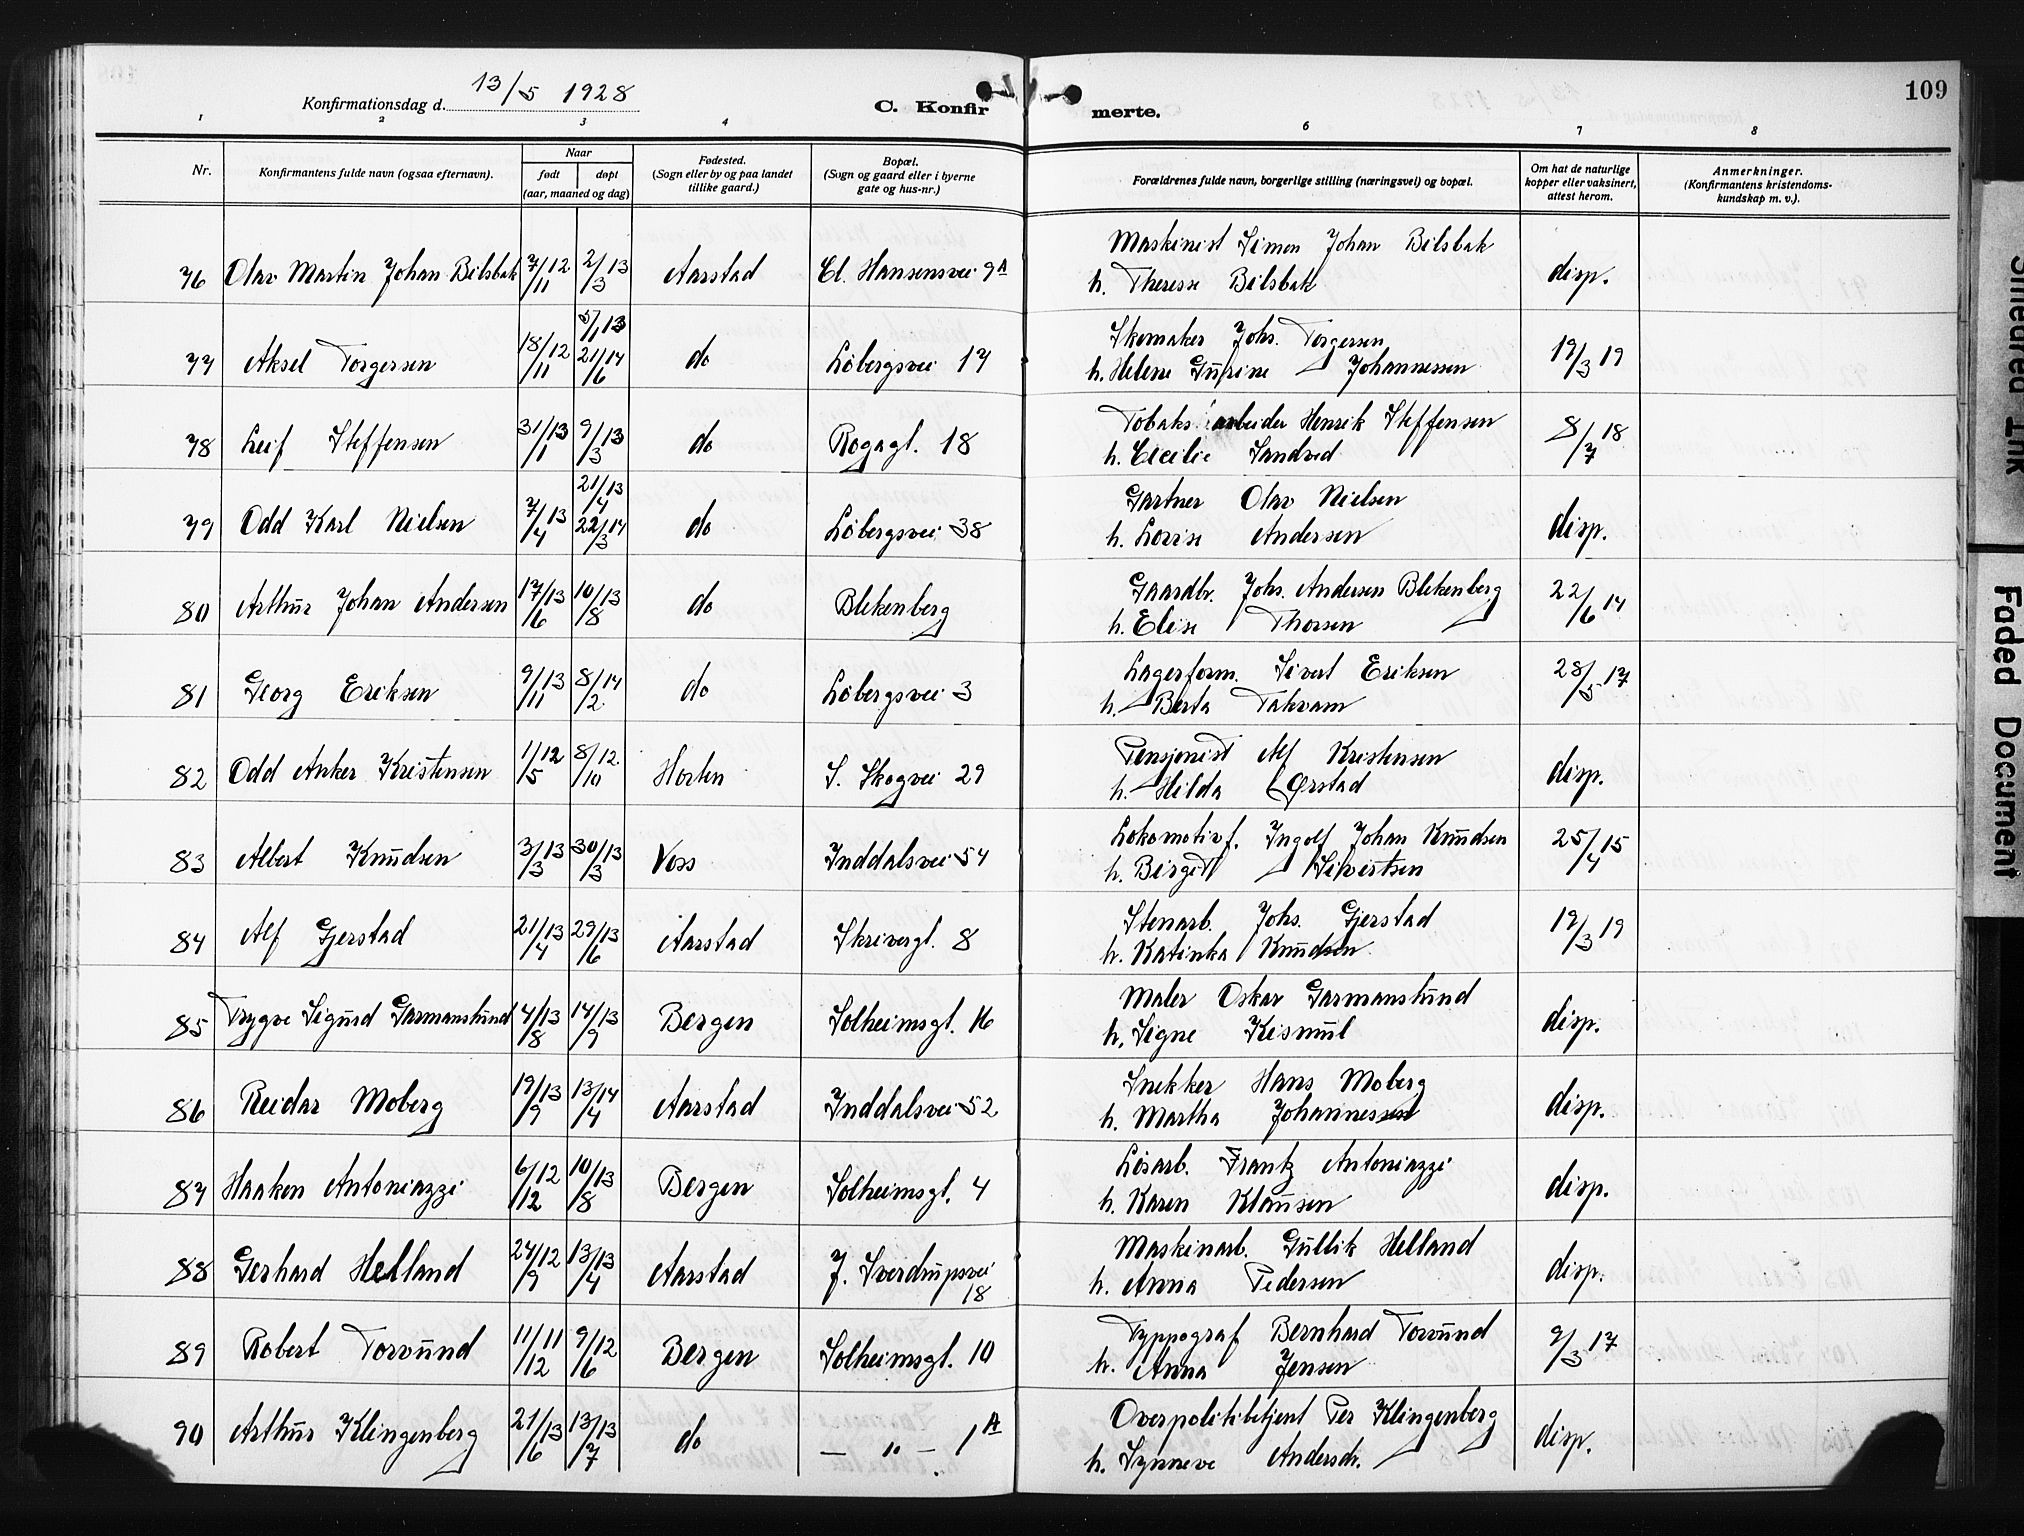 109
Konfirmationsdag d. 13/5 1928
C. Konfirmerte.
1 2 3 4 5 6 7 8
Nr. | Konfirmantens fulde navn (ogsaa efternavn). | Naar født døpt (aar, maaned og dag) | Fødested. (Sogn eller by og paa landet tillike gaard.) | Bopæl. (Sogn og gaard eller i byerne gate og hus-nr.) | Forældrenes fulde navn, borgerlige stilling (næringsvei) og bopæl. | Om hat de naturlige kopper eller vaksinert, attest herom. | Anmerkninger. (Konfirmantens kristendoms-kundskap m. v.).
76 Olav Martin Johan Bilsbak 7/12 11 2/13 3 Aarstad Cl. Hansensvei 9A Maskinist Simon Johan Bilsbak
h. Therese Bilsbak disp.
77 Aksel Torgersen 18/12 11 5/1 13 21/14 6 do Løbergsvei 17 Skomaker Johs. Torgersen
h. Helene Gurine Johannessen 19/3 19
78 Leif Steffensen 31/13 1 9/13 3 do Rogagt. 18 Tobaksarbeider Henrik Steffensen
h. Cecilie Sandved 8/7 18
79 Odd Karl Nielsen 7/13 4 21/13 4 22/14 3 do Løbergsvei 38 Gartner Olav Nielsen
h. Lovise Andersen disp.
80 Arthur Johan Andersen 17/13 6 10/13 8 do Blekenberg Gaardbr. Johs. Andersen Blekenberg
h. Elise Thorsen 22/6 14
81 Georg Eriksen 9/13 11 8/14 2 do Løbergsvei 3 Lagerform. Sivert Eriksen
h. Berta Takvam 28/5 17
82 Odd Anker Kristensen 1/12 5 8/12 10 Horten S. Skogvei 29 Pensjonist Alf Kristensen
h. Hilda Ørstad disp.
83 Albert Knudsen 3/13 3 30/13 3 Voss Inddalsvei 54 Lokomotivf. Ingolf Johan Knudsen
h. Birgit Sivertsen 25/4 15
84 Alf Gjerstad 21/13 4 29/13 6 Aarstad Skrivergt. 8 Stenarb. Johs. Gjerstad
h. Katinka Knudsen 19/3 19
85 Trygve Sigurd Garmanslund 4/13 8 14/13 9 Bergen Solheimsgt. 16 Maler Oskar Garmanslund
h. Signe Kismul disp.
86 Reidar Moberg 19/13 9 13/14 4 Aarstad Inddalsvei 52 Snekker Hans Moberg
h. Martha Johannessen disp.
87 Haakon Antoniazzi 6/12 12 10/13 8 Bergen Solheimsgt. 4 Løsarb. Frantz Antoniazzi
h. Karen Klausen disp.
88 Gerhard Helland 24/12 9 13/13 4 Aarstad J. Sverdrupsvei 18 Maskinarb. Gullik Helland
h. Anna Pedersen disp.
89 Robert Torvund 11/11 12 9/12 6 Bergen Solheimsgt. 10 Typpograf Bernhard Torvund
h. Anna Jensen 9/3 17
90 Arthur Klingenberg 21/13 6 13/13 7 do — " — 1A Overpolitibetjent Per Klingenberg
h. Synneve Andersdr. disp.
Smeared Ink
Faded Document